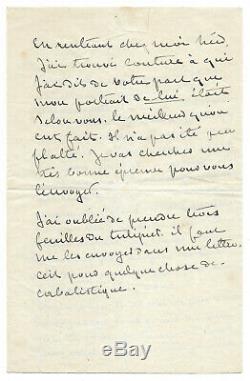 En rentrant chez moi hier,
j'ai trouvé Couture à qui
j'ai dit de votre part que
mon portrait de lui était
selon vous, le meilleur qu'on
eut fait. Il n'a pas été peu
flatté. Je vais chercher une
très bonne épreuve pour vous
l'envoyer.
J'ai oublié de prendre trois
feuilles du tulipier. il faut
me les envoyer dans une lettre.
c'est pour quelque chose de
cabalistique.
ebay